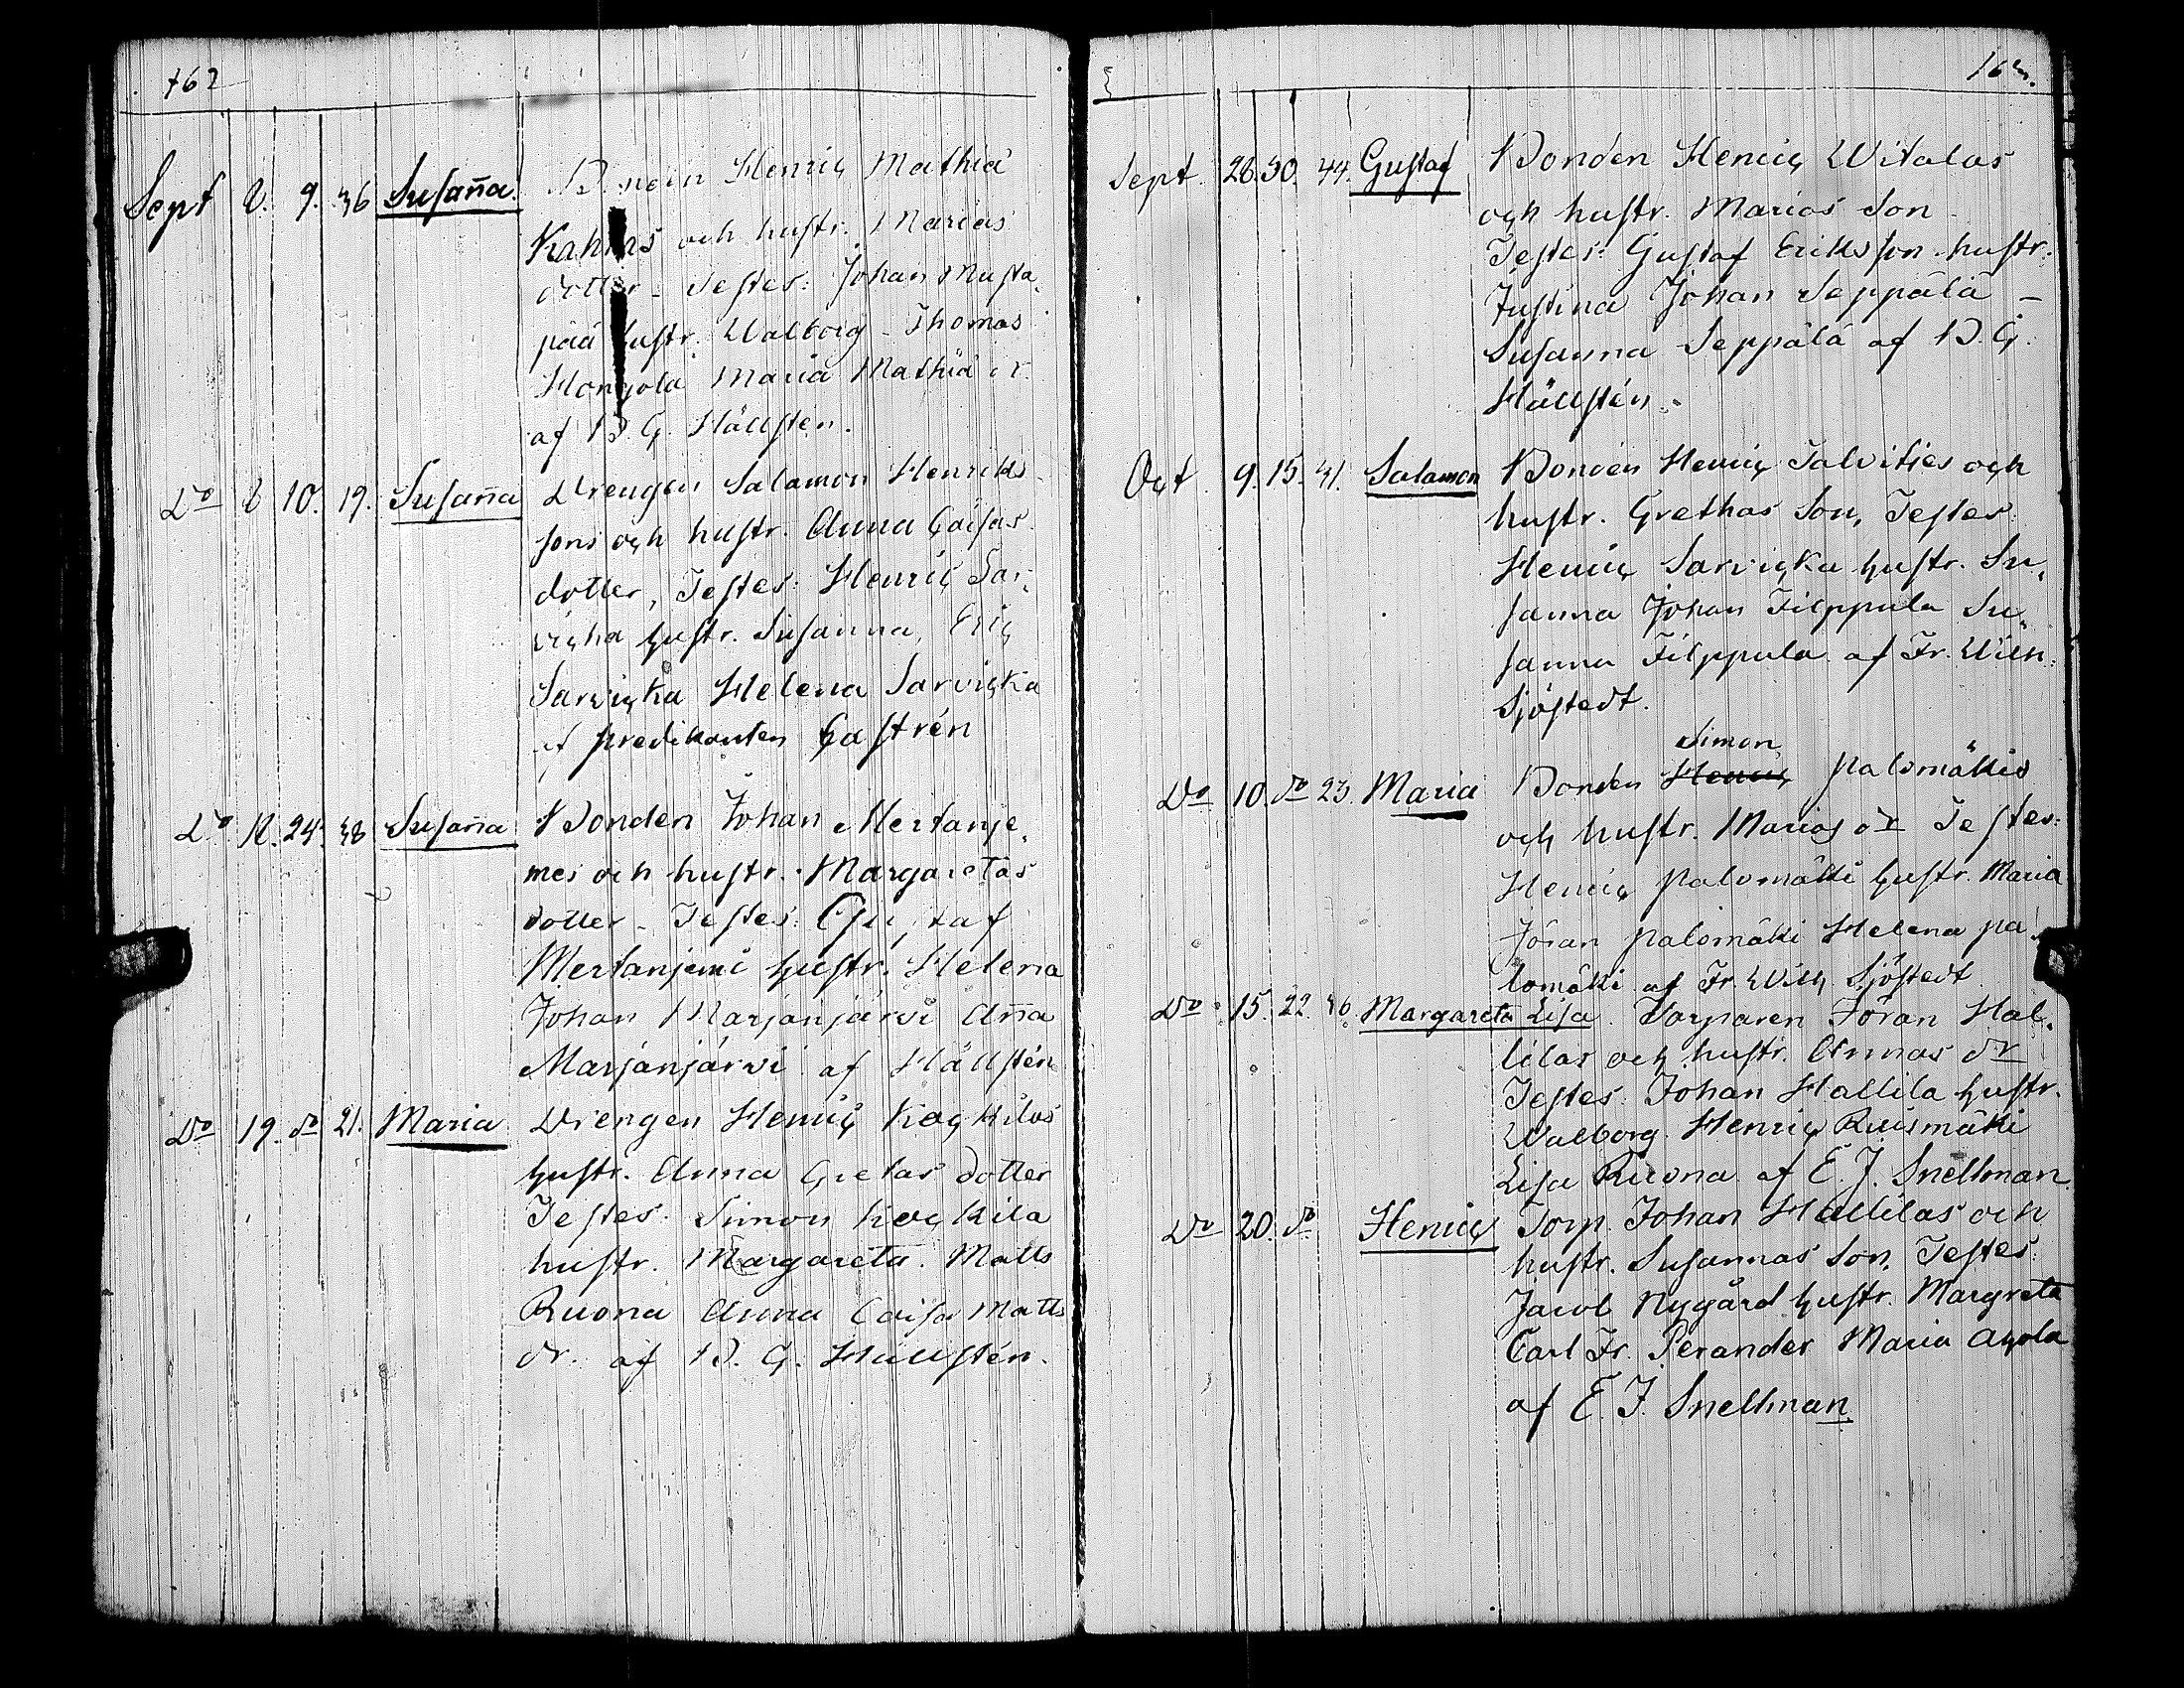 162
Sept 8. 9. 36 Susan̄a. Bonden Henric Mathiä
Kahras och hustr. Marias
dotter - Testes: Johan Musta-
pää hustr. Walborg - Thomas
Hongola Maria Mathiä dr.
af B. G. Hällstén.
Do 8 10. 19. Susan̄a Drengen Salamon Henriks-
sons och hustr. Anna Caisas
dotter, Testes: Henric Sar-
vicka hustr. Susanna, Eric
Sarvicka Helena Sarvicka
af predikanten Castrén
Do 12. 24. 38 Susan̄a Bonden Johan Mertanje-
mes och hustr. Margaretas
dotter - Testes: Gustaf
Mertanjemi hustr. Helena
Johan Marjanjärvi An̄a
Marjanjärvi af Hällstén
Do 19. do 21. Maria Drengen Henric Kockilas
hustr. Anna Gretas dotter
Testes: Simon Kockila
hustr. Margareta. Matts
Ruona Anna Caisa Matts
dr. af B. G. Hällstén.
163.
Sept. 28. 30. 44. Gustaf Bonden Henric Witalas
och hustr. Marias Son
Testes: Gustaf Eriksson hustr.
Justina Johan Seppälä -
Susanna Seppälä af B. G.
Hällstén.
Oct 9. 15. 41. Salamon Bonden Henric Talvities och
hustr. Grethas Son, Testes:
Henric Sarvicka hustr. Su-
sanna Johan Filppula Su-
sanna Filppula af Fr. Wilh.
Sjöstedt.
Simon
Do 10. do 23. Maria Bonden Henric Palomäkis
och hustr. Marias dr Testes:
Henric Palomäki hustr. Maria
Jöran Palomäki Helena Pa-
lomäki af Fr. Wilh Sjöstedt
Do 15. 22. 36. Margareta Lisa. Torparen Jöran Hal-
lilas och hustr. Annas dr
Testes: Johan Hallila hustr.
Walborg. Henric Ruismäki
Lisa Ruona af E. J. Snellman.
Do 20. do Henric Torp. Johan Hallilas och
hustr. Susannas Son, Testes:
Jacob Nygård hustr. Margreta
Carl Fr. Perander Maria Ahola
af E. J. Snellman